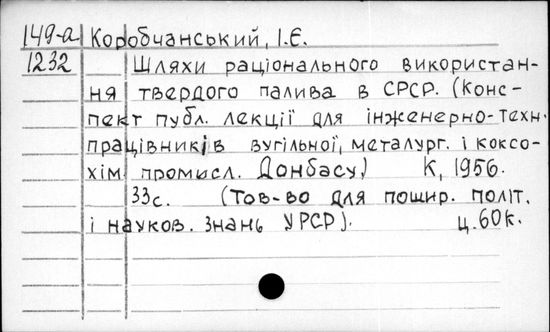 149-а Коробчанський, І.Є.
1232 Шляхи раціонального використан-
ня твердого палива в СРСР. (Конс-
пект публ. лекції для інженерно-техн.
працівників вугільної, металург. і коксо-
хім. промисл. Донбасу) К, 1956.
33с. (Тов-во для пошир. політ.
і науков. знань УРСР). ц.60к.